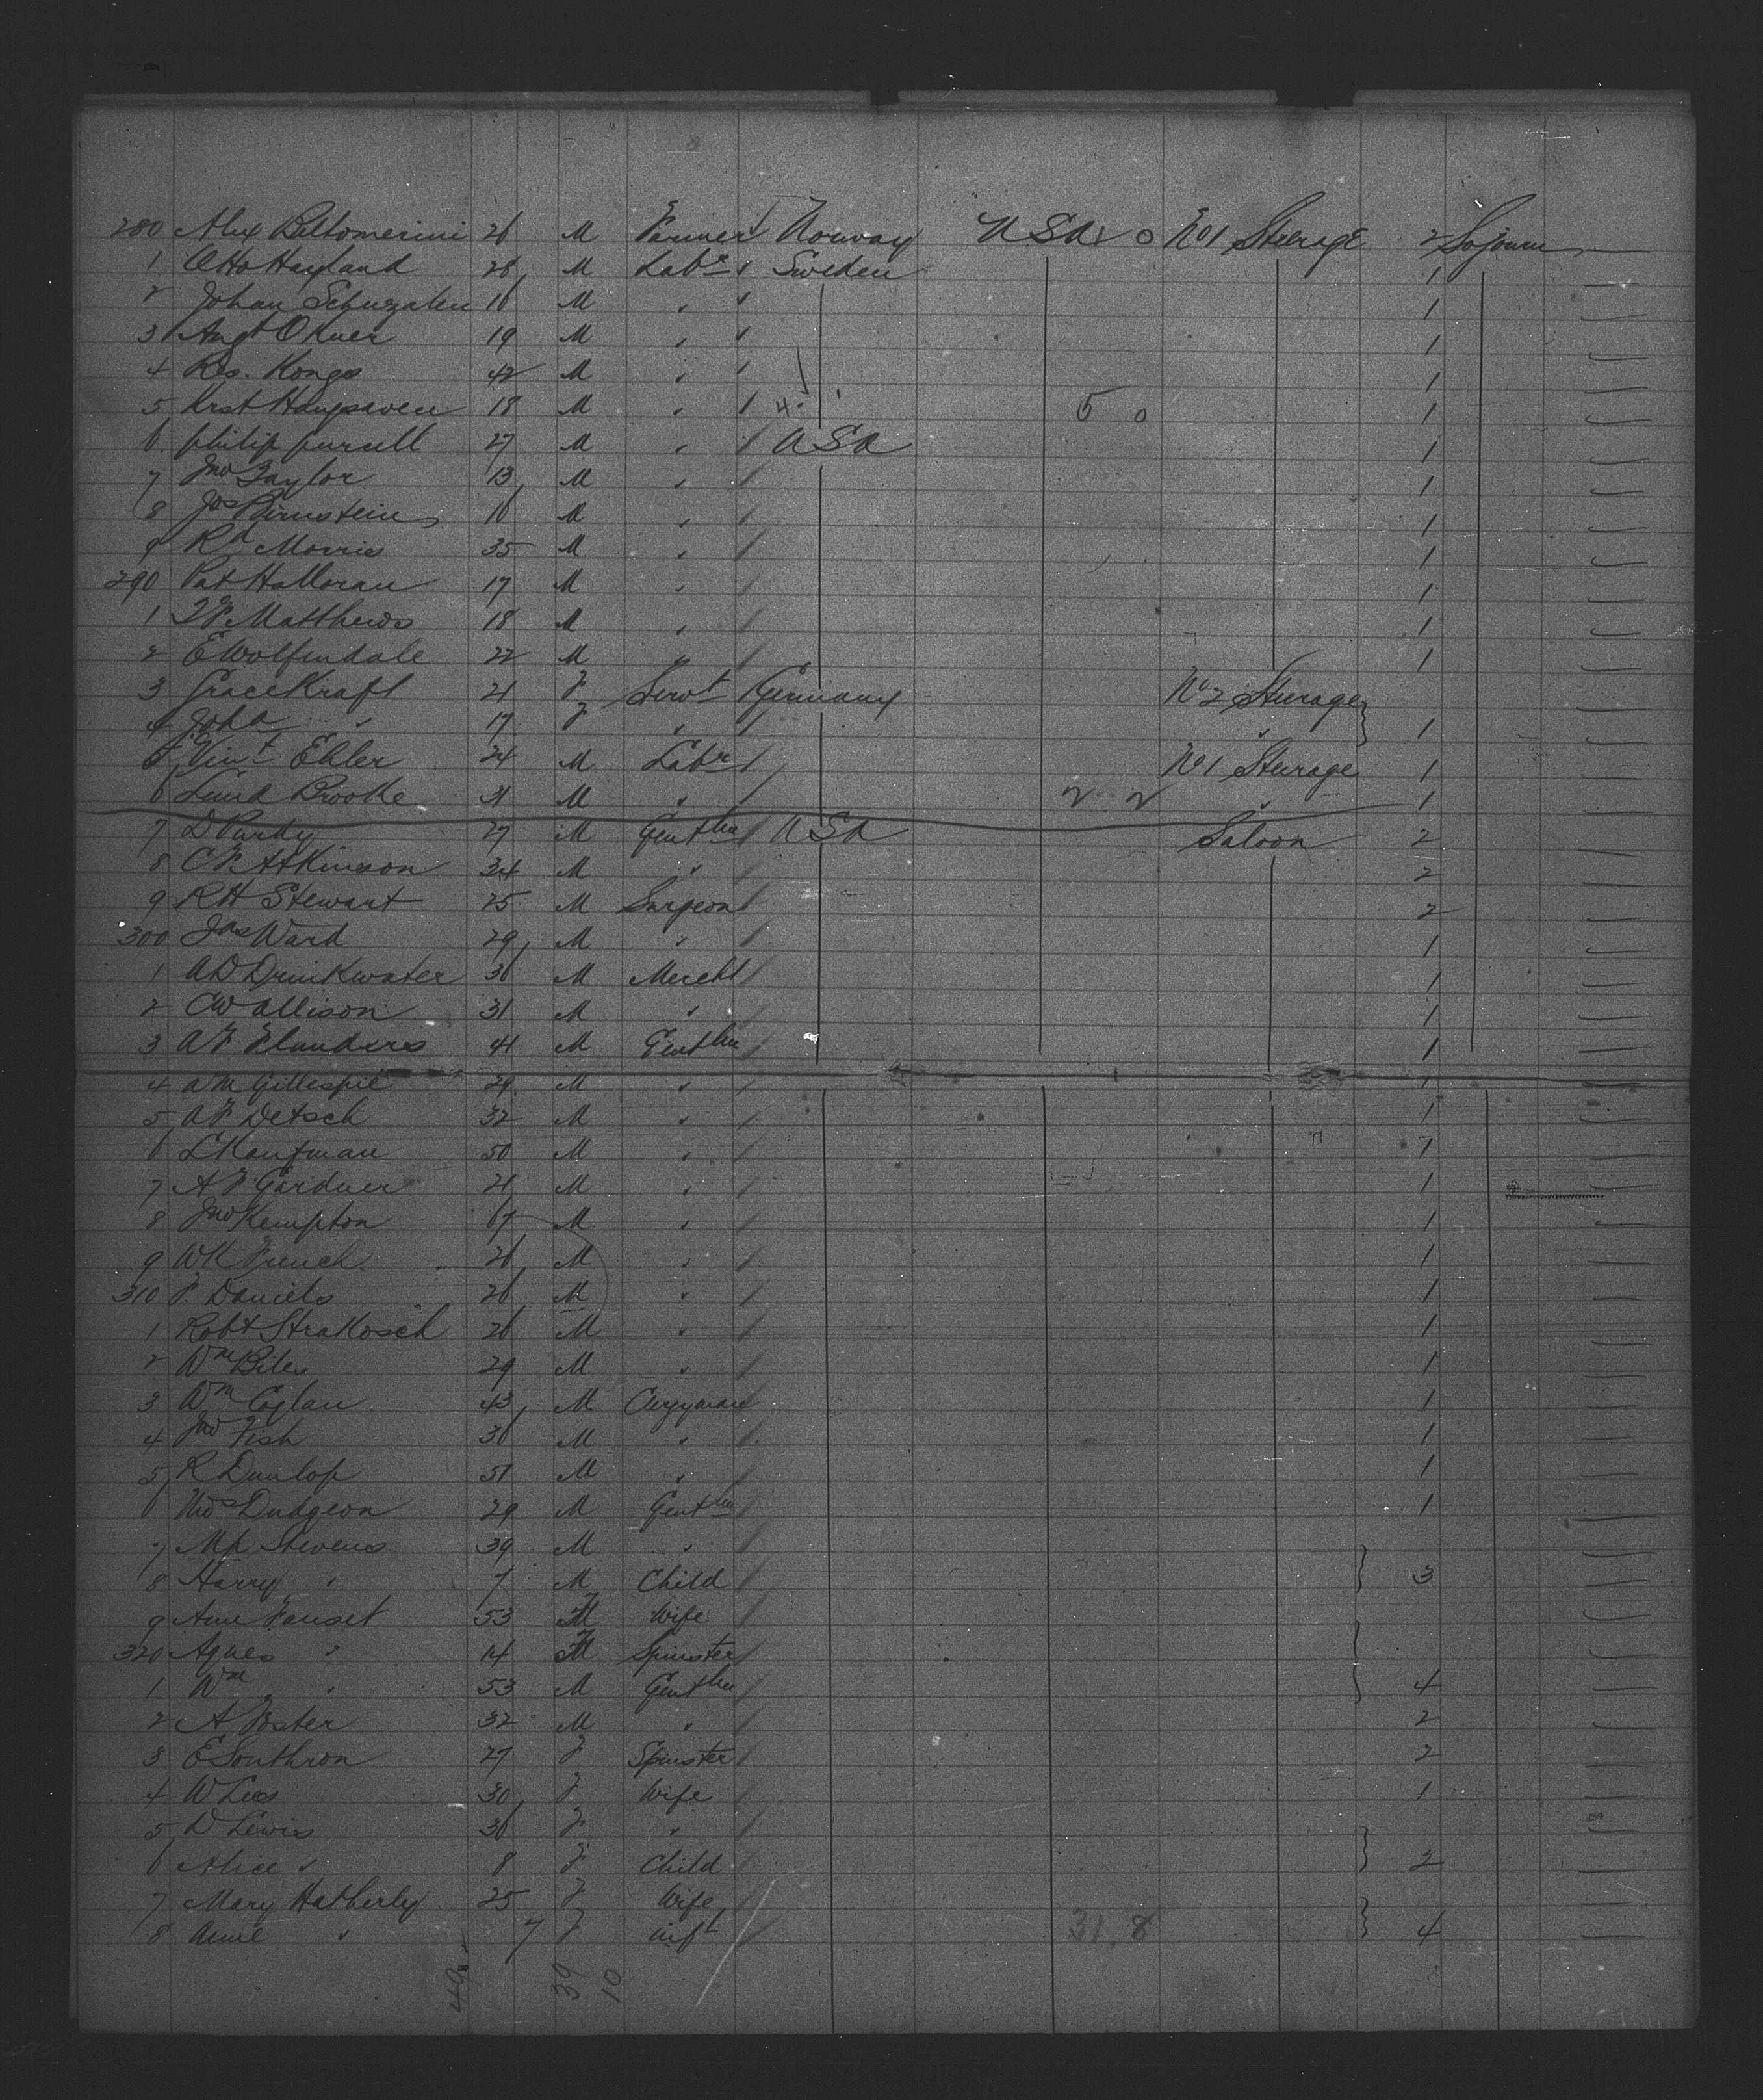 280 Alex Beltomerini 26 M Farmer Norway USA 0 No 1 Steerage 2 Sojourn
1 Otto Hayland 28 M Labr Sweden 1
2 Johan 16 M " 1
3 Augt Okner 19 M " 1
4 Res. Kongs 42 M " 1
5 Krst Haugsaven 18 M " 4 5 0 1
6 philip pursell 27 M " USA 1
7 Jno Taylor 13 M " 1
8 Jos Birnstein 16 M " 1
9 Rd Morris 35 M " 1
290 Pat Halloran 17 M " 1
1 Matthews 18 M " 1
2 E Wolfindale 22 M " 1
3 Grace Kraft 21 F Servt Germany No 2 Steerage
4 Joha " 17 F " " 1
5 Vint Ehler 24 M Labr No 1 Steerage 1
6 Brooke 31 M " 2 2 " 1
7 D Purdy 27 M Gentln USA Saloon 2
8 Atkinson 34 M " 2
9 RH Stewart 25 M Surgeon 2
300 Jas Ward 29 M " 1
1 AD Drinkwater 36 M Mercht 1
2 CW Allison 31 M " 1
3 AF Flanders 41 M Gentln 1
4 AM Gillespie 29 M " 1
5 AF Detsch 32 M " 1
6 L Kaufman 50 M " 1
7 AF Gardner 21 M " 1
8 Jno Kempton 67 M " 1
9 WK French 26 M " 1
310 F. Daniels 26 M " 1
1 Robt Strakosch 26 M " 1
2 Wm Biles 29 M " 1
3 Wm Coglan 43 M Clergyman 1
4 Jno Fish 36 M " 1
5 R Dunlop 51 M " 1
6 Thos Dudgeon 29 M Gentln 1
7 Stevens 39 M "
8 Harry " 7 M Child 3
9 Ann Fauset 53 F Wife
320 Agnes " 14 F Spinster
1 Wm " 53 M Gentln 4
2 A Foster 32 M " 2
3 E Southron 27 F Spinster 2
4 W Lees 30 F Wife 1
5 D Lewis 36 F "
6 Alice " 8 F Child 2
7 Mary Hatherley 25 F Wife
8 Annie " 7 F inft 31. 8 4
49 39 10